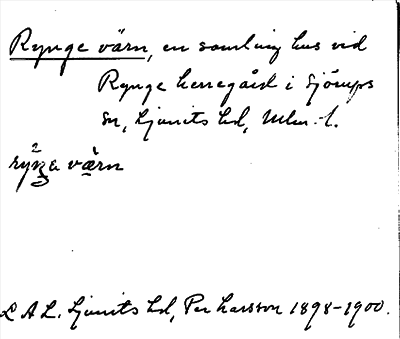 Rynge värn, en samling hus vid
Rynge herregård i Sjörups
sn, Ljunits hd, Mlm. l.
ryŋə værn
L A L. Ljunits hd, Per Larsson 1898-1900.